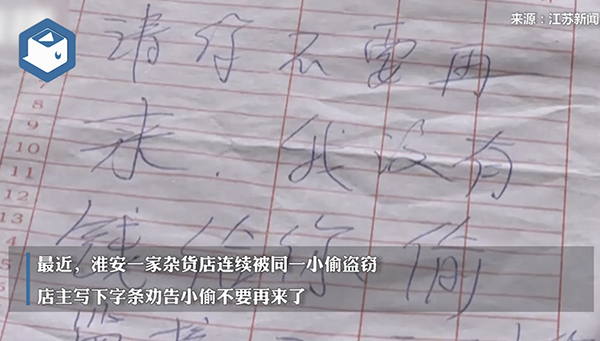 来源:江苏新闻
请你不要再
7
8
来.我没有
9
10
11
12
13
钱给你偷
最近，淮安一家杂货店连续被同一小偷盗窃
店主写下字条劝告小偷不要再来了